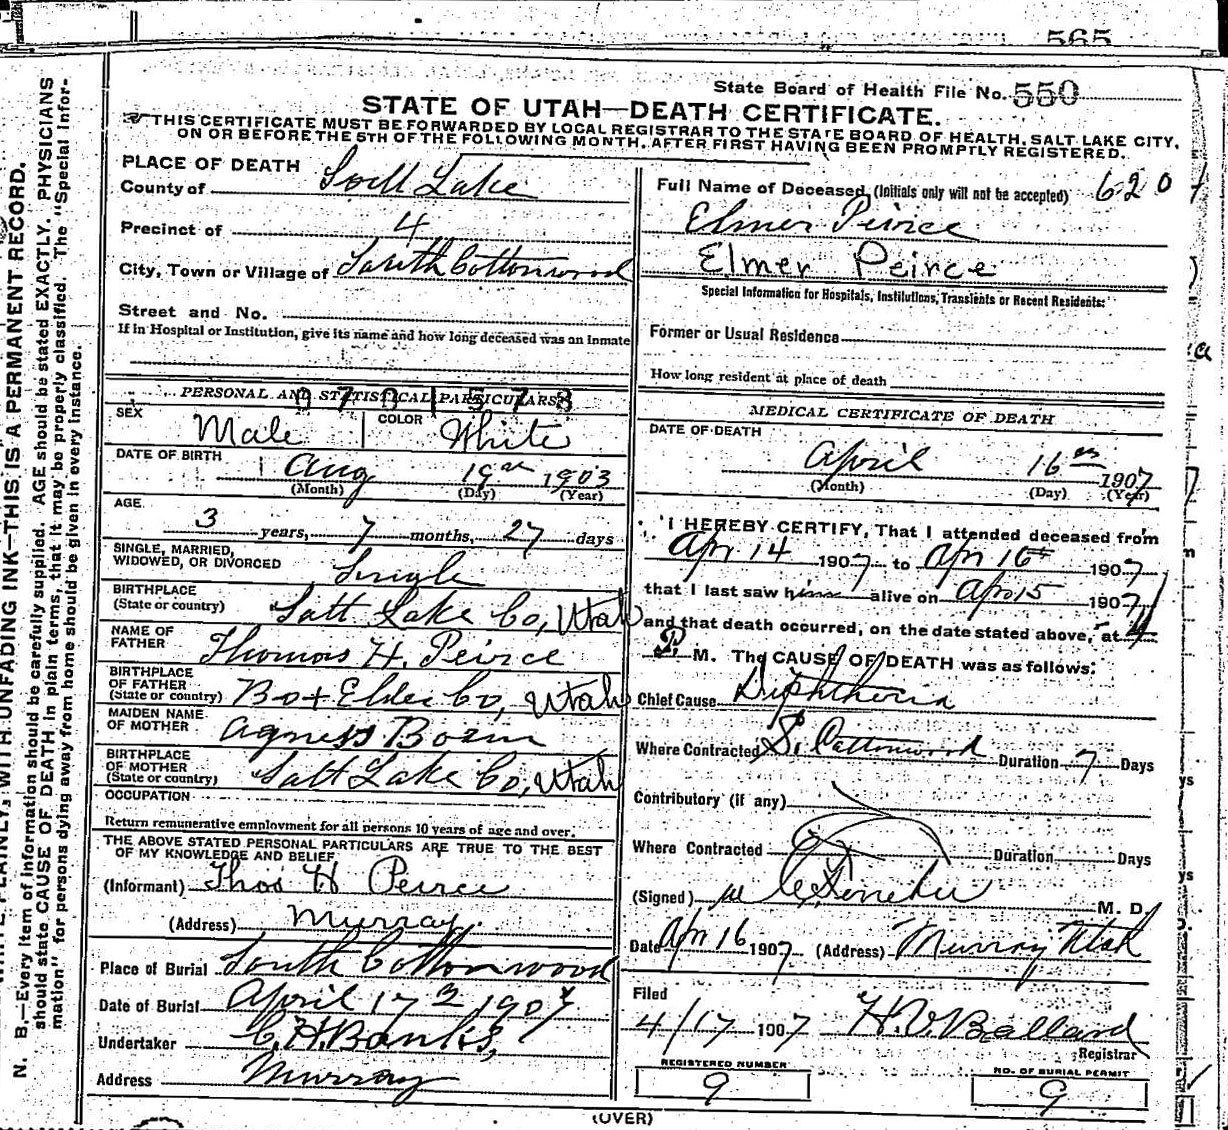 565
State Board of Health File No. 550
STATE OF UTAH—DEATH CERTIFICATE.
THIS CERTIFICATE MUST BE FORWARDED BY LOCAL REGISTRAR TO THE STATE BOARD OF HEALTH, SALT LAKE CITY,
ON OR BEFORE THE 5TH OF THE FOLLOWING MONTH, AFTER FIRST HAVING BEEN PROMPTLY REGISTERED.
N. B.—Every item of information should be carefully supplied. AGE should be stated EXACTLY. PHYSICIANS
should state CAUSE OF DEATH in plain terms, that it may be properly classified. The "Special Infor-
mation" for persons dying away from home should be given in every instance.
WRITE PLAINLY, WITH UNFADING INK—THIS IS A PERMANENT RECORD.
PLACE OF DEATH
County of Salt Lake
Precinct of 4
City, Town or Village of South Cottonwood
Street and No.
If in Hospital or Institution, give its name and how long deceased was an Inmate
PERSONAL AND STATISTICAL PARTICULARS
SEX Male COLOR White
DATE OF BIRTH Aug 19 1903
(Month) (Day) (Year)
AGE
3 years, 7 months, 27 days
SINGLE, MARRIED,
WIDOWED, OR DIVORCED Single
BIRTHPLACE
(State or country) Salt Lake Co, Utah
NAME OF
FATHER Thomas H. Peirce
BIRTHPLACE
OF FATHER
(State or country) Box Elder Co, Utah
MAIDEN NAME
OF MOTHER Agness
BIRTHPLACE
OF MOTHER
(State or country) Salt Lake Co, Utah
OCCUPATION
Return remunerative employment for all persons 10 years of age and over.
THE ABOVE STATED PERSONAL PARTICULARS ARE TRUE TO THE BEST
OF MY KNOWLEDGE AND BELIEF
(Informant) Thos H Peirce
(Address) Murray
Place of Burial South Cottonwood
Date of Burial April 17 1907
Undertaker C. H. Banks,
Address Murray
Full Name of Deceased (Initials only will not be accepted) 620
Elmer Peirce
Elmer Peirce
Special Information for Hospitals, Institutions, Transients or Recent Residents:
Former or Usual Residence
How long resident at place of death
MEDICAL CERTIFICATE OF DEATH
DATE OF DEATH
April 16 1907
(Month) (Day) (Year)
I HEREBY CERTIFY, That I attended deceased from
Apr 14 1907 to Apr 16th 1907
that I last saw him alive on Apr 15 1907
and that death occurred, on the date stated above, at 4
P. M. The CAUSE OF DEATH was as follows:
Chief Cause Diphtheria
Where Contracted S. Cottonwood Duration 7 Days
Contributory (if any)
Where Contracted Duration Days
(Signed) M. D.
Date Apr 16 1907 (Address) Murray Utah
Filed
4/17 1907 H. V. Ballard
Registrar
REGISTERED NUMBER
9
NO. OF BURIAL PERMIT
9
(OVER)